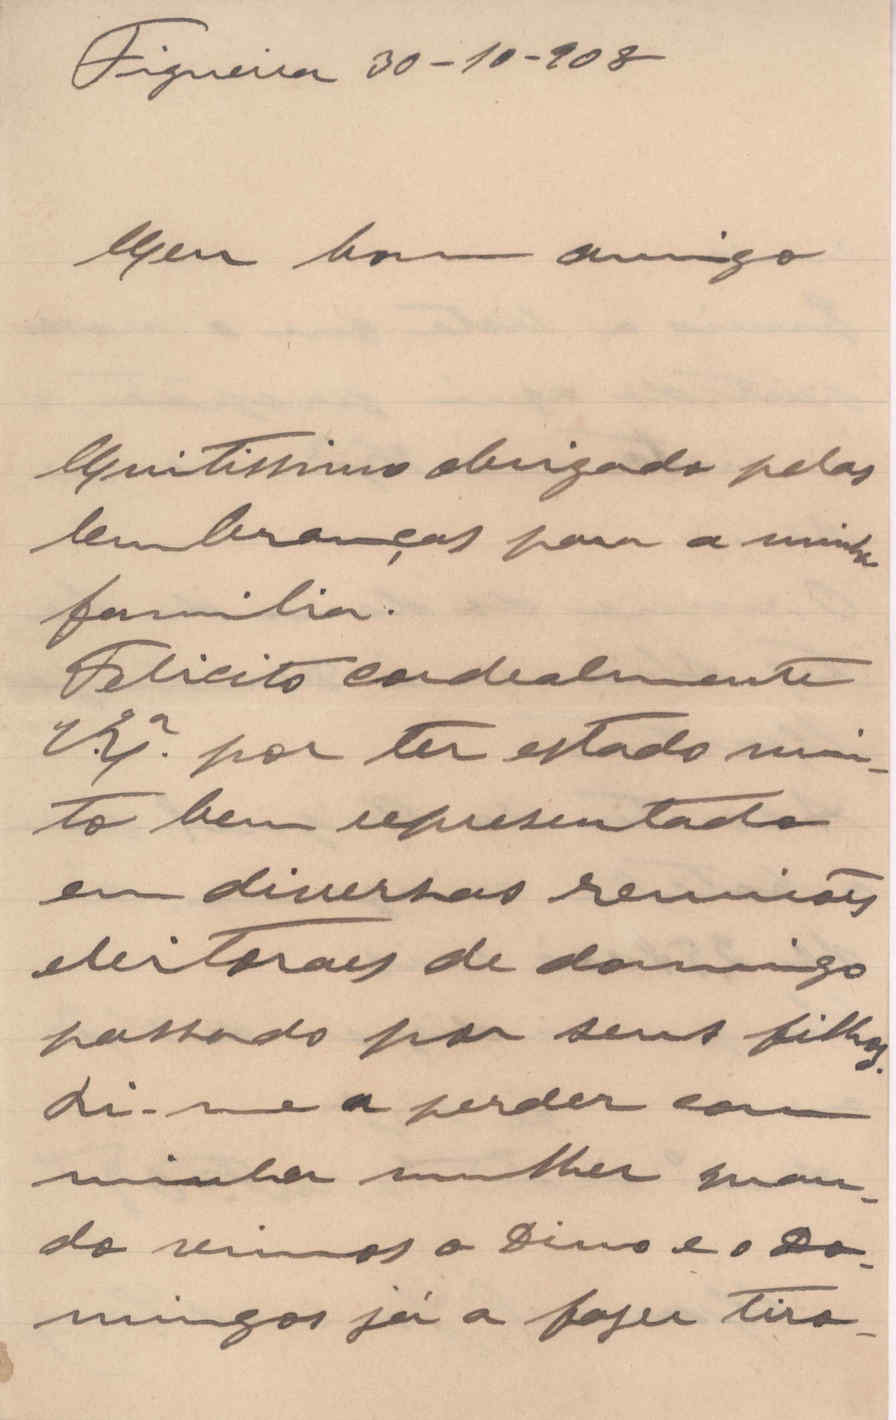 Figueira 30-10-908
Meu bom amigo
Muitissimo obrigado pelas
lembranças para a minha
familia.
Felicito cordealmente
V. Ex.ª por ter estado mui-
to bem representado
em diversas reuniões
eleitoraes de domingo
passado por seus filhos.
Ri-me a perder com
minha mulher quan-
do vimos o Dino e o Do-
mingos já a fazer tiro-